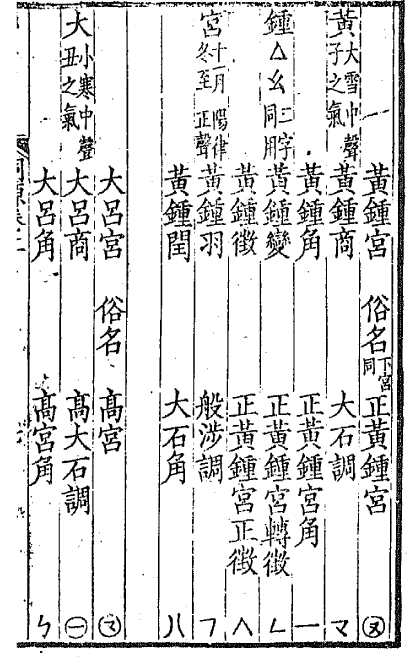 黃鍾宮 俗名 下宮同 正黃鍾宮
黃 大雪中聲 子之氣 黃鍾商 大石調 マ
黃鍾角 正黃鍾宮角 一
鍾 △幺 二字同用 黃鍾變 正黃鍾宮轉徵 ㄥ
黃鍾徵 正黃鍾宮正徵 人
宮 十一月 冬至 陽律 正聲 黃鍾羽 般涉調 フ
黃鍾閏 大石角 八
大呂宮 俗名 高宮
大 小寒中聲 丑之氣 大呂商 高大石調 ㊀
大呂角 高宮角 ㄣ